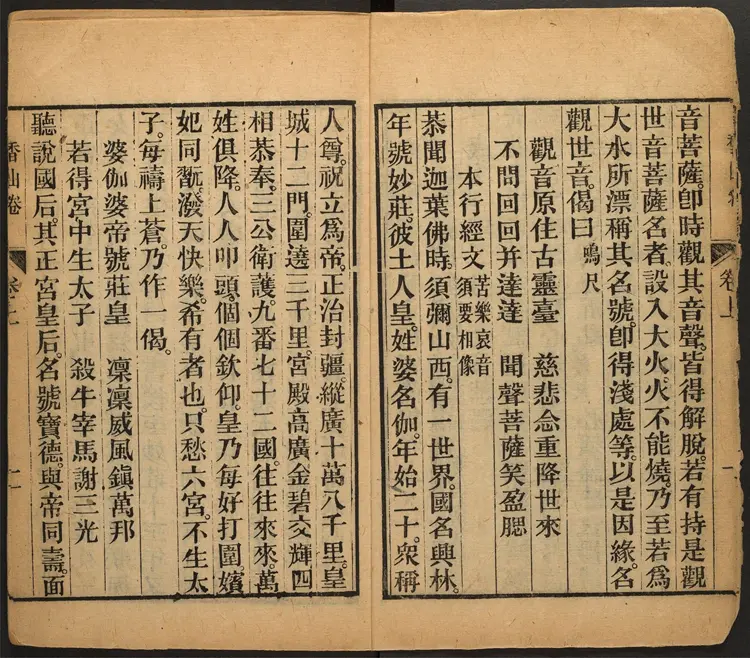 音菩薩。卽時觀其音聲。皆得解脫。若有持是觀
世音菩薩名者。設入大火。火不能燒。乃至若爲
大水所漂。稱其名號。卽得淺處等。以是因緣。名
觀世音。偈曰 鳴尺
觀音原住古靈臺 慈悲念重降世來
不問回回并達達 聞聲菩薩笑盈腮
本行經文 苦樂哀音 須要相像
恭聞迦葉佛時。須彌山西。有一世界。國名興林。
年號妙莊。彼土人皇。姓婆名伽。年始二十。衆稱
卷上
一
人尊。祝立爲帝。正治封疆。縱廣十萬八千里。皇
城十二門。圍遶三千里。宮殿高廣。金碧交輝。四
相恭奉。三公衛護。九番七十二國。往往來來。萬
姓俱降。人人叩頭。個個欽仰。皇乃每好打圍。嬪
妃同翫。潑天快樂。希有者也。只愁六宮。不生太
子。每禱上蒼。乃作一偈。
婆伽婆帝號莊皇 凛凛威風鎭萬邦
若得宮中生太子 殺牛宰馬謝三光
聽說國后。其正宮皇后。名號寶德。與帝同壽。面
香山卷
卷上
二